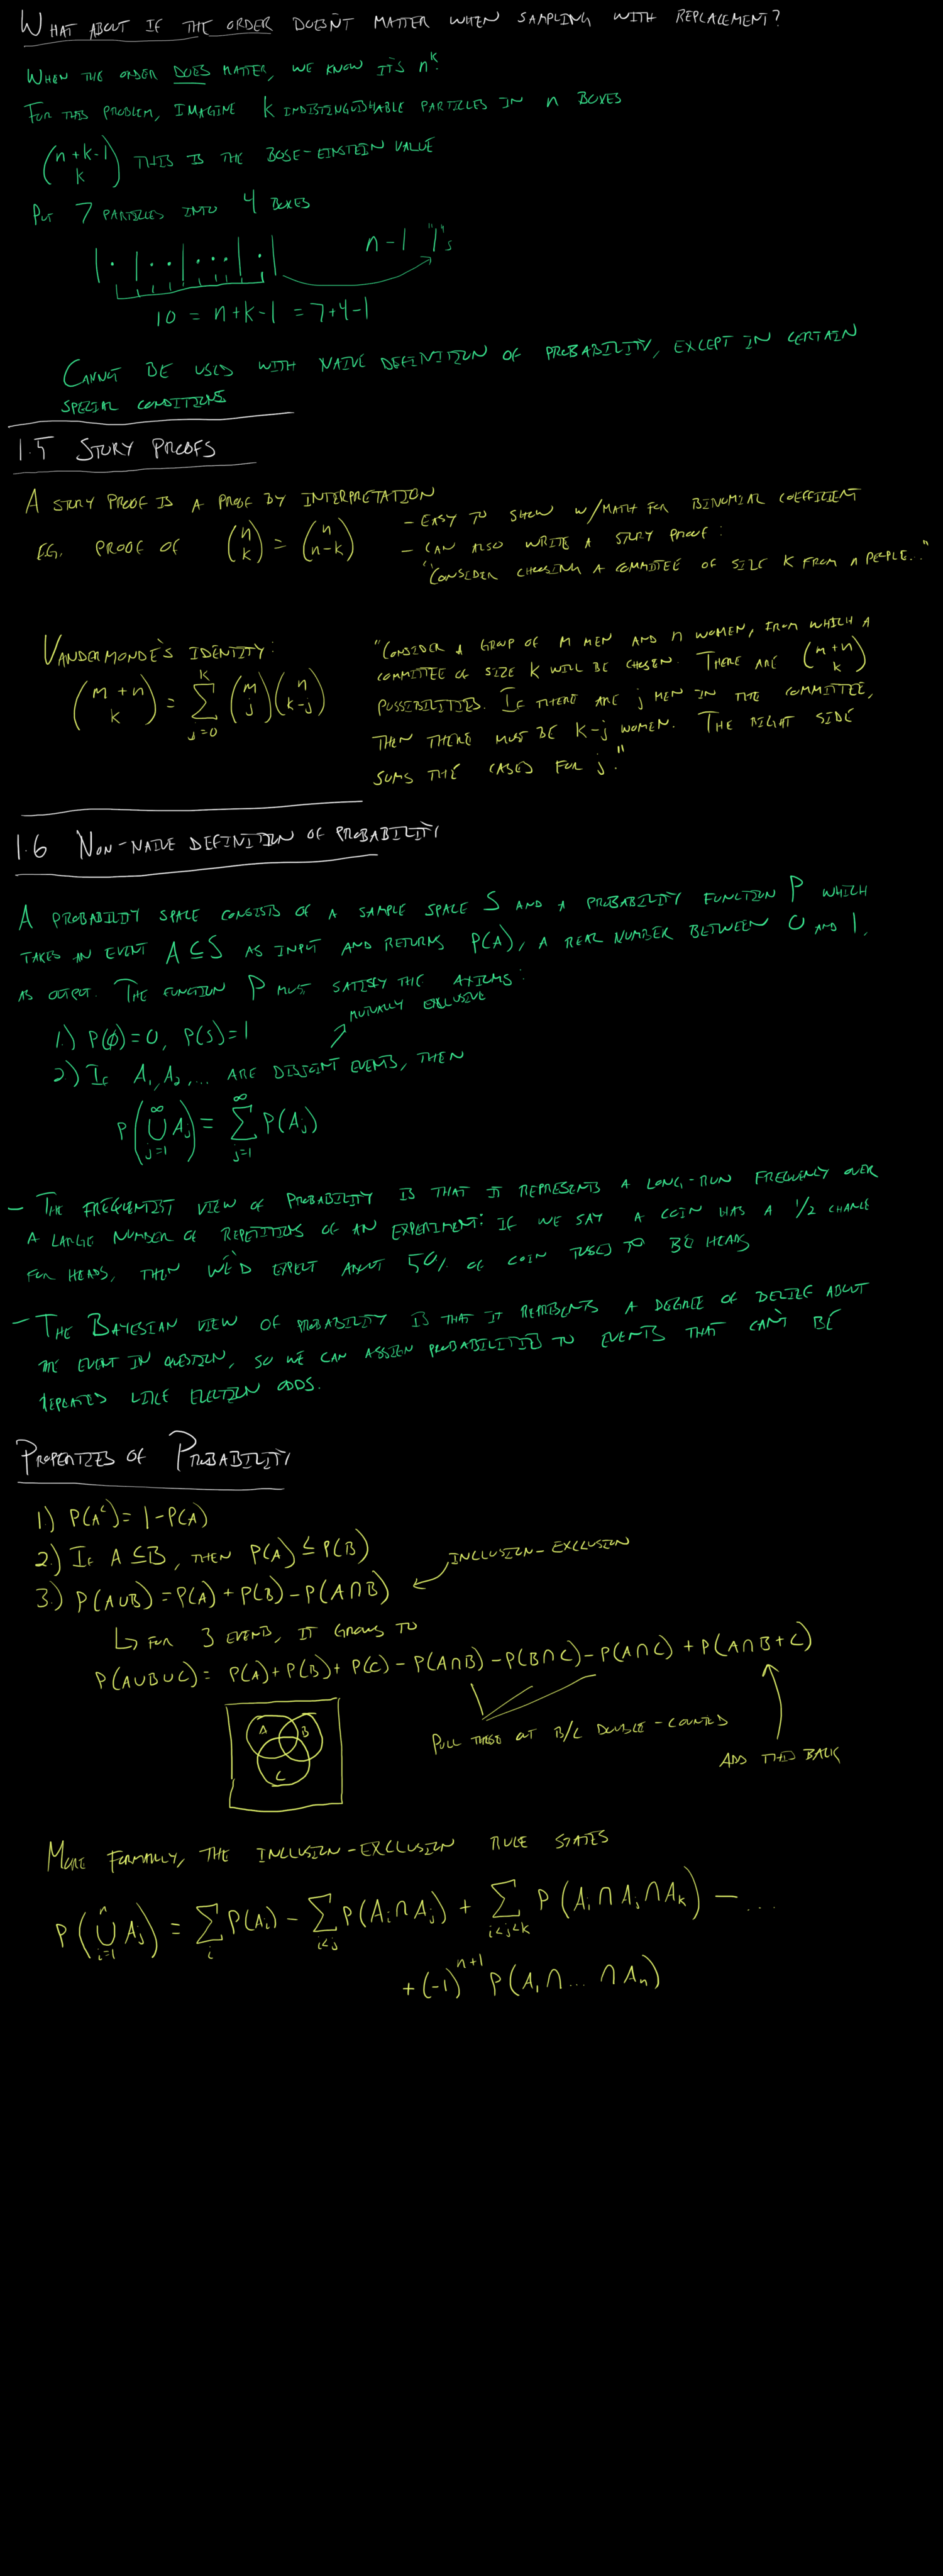 WHAT ABOUT IF THE ORDER DOESN'T MATTER WHEN SAMPLING WITH REPLACEMENT?
WHEN THE ORDER DOES MATTER, WE KNOW IT'S n^k.
FOR THIS PROBLEM, IMAGINE k INDISTINGUISHABLE PARTICLES IN n BOXES
(n+k-1 choose k) THIS IS THE BOSE-EINSTEIN VALUE
PUT 7 PARTICLES INTO 4 BOXES
|·|··|···|·| n-1 "|"s
10 = n+k-1 = 7+4-1
CANNOT BE USED WITH NAIVE DEFINITION OF PROBABILITY, EXCEPT IN CERTAIN
SPECIAL CONDITIONS
1.5 STORY PROOFS
A STORY PROOF IS A PROOF BY INTERPRETATION
E.G. PROOF OF (n choose k) = (n choose n-k)
- EASY TO SHOW W/MATH FOR BINOMIAL COEFFICIENT
- CAN ALSO WRITE A STORY PROOF:
"CONSIDER CHOOSING A COMMITTEE OF SIZE K FROM n PEOPLE..."
VANDERMONDE'S IDENTITY:
(m+n choose k) = ∑_{j=0}^{k} (m choose j)(n choose k-j)
"CONSIDER A GROUP OF M MEN AND n WOMEN, FROM WHICH A
COMMITTEE OF SIZE K WILL BE CHOSEN. THERE ARE (m+n choose k)
POSSIBILITIES. IF THERE ARE j MEN IN THE COMMITTEE,
THEN THERE MUST BE K-j WOMEN. THE RIGHT SIDE
SUMS THE CASES FOR j."
1.6 NON-NAIVE DEFINITION OF PROBABILITY
A PROBABILITY SPACE CONSISTS OF A SAMPLE SPACE S AND A PROBABILITY FUNCTION P WHICH
TAKES AN EVENT A⊆S AS INPUT AND RETURNS P(A), A REAL NUMBER BETWEEN 0 AND 1,
AS OUTPUT. THE FUNCTION P MUST SATISFY THE AXIOMS:
1.) P(∅)=0, P(S)=1
MUTUALLY EXCLUSIVE
2.) IF A₁,A₂,... ARE DISJOINT EVENTS, THEN
P(⋃_{j=1}^{∞} A_j) = ∑_{j=1}^{∞} P(A_j)
- THE FREQUENTIST VIEW OF PROBABILITY IS THAT IT REPRESENTS A LONG-RUN FREQUENCY OVER
A LARGE NUMBER OF REPETITIONS OF AN EXPERIMENT: IF WE SAY A COIN HAS A 1/2 CHANCE
FOR HEADS, THEN WE'D EXPECT ABOUT 50% OF COIN TOSSES TO BE HEADS
- THE BAYESIAN VIEW OF PROBABILITY IS THAT IT REPRESENTS A DEGREE OF BELIEF ABOUT
THE EVENT IN QUESTION, SO WE CAN ASSIGN PROBABILITIES TO EVENTS THAT CAN'T BE
REPEATED LIKE ELECTION ODDS.
PROPERTIES OF PROBABILITY
1.) P(A^c) = 1-P(A)
2.) IF A⊆B, THEN P(A) ≤ P(B)
3.) P(A∪B) = P(A) + P(B) - P(A∩B)
INCLUSION-EXCLUSION
↳ FOR 3 EVENTS, IT GROWS TO
P(A∪B∪C) = P(A)+P(B)+P(C) - P(A∩B) - P(B∩C) - P(A∩C) + P(A∩B+C)
A B
C
PULL THESE OUT B/C DOUBLE-COUNTED
ADD THIS BACK
MORE FORMALLY, THE INCLUSION-EXCLUSION RULE STATES
P(⋃_{i=1}^{n} A_j) = ∑_i P(A_i) - ∑_{i<j} P(A_i∩A_j) + ∑_{i<j<k} P(A_i∩A_j∩A_k) - ...
+ (-1)^{n+1} P(A₁∩...∩A_n)